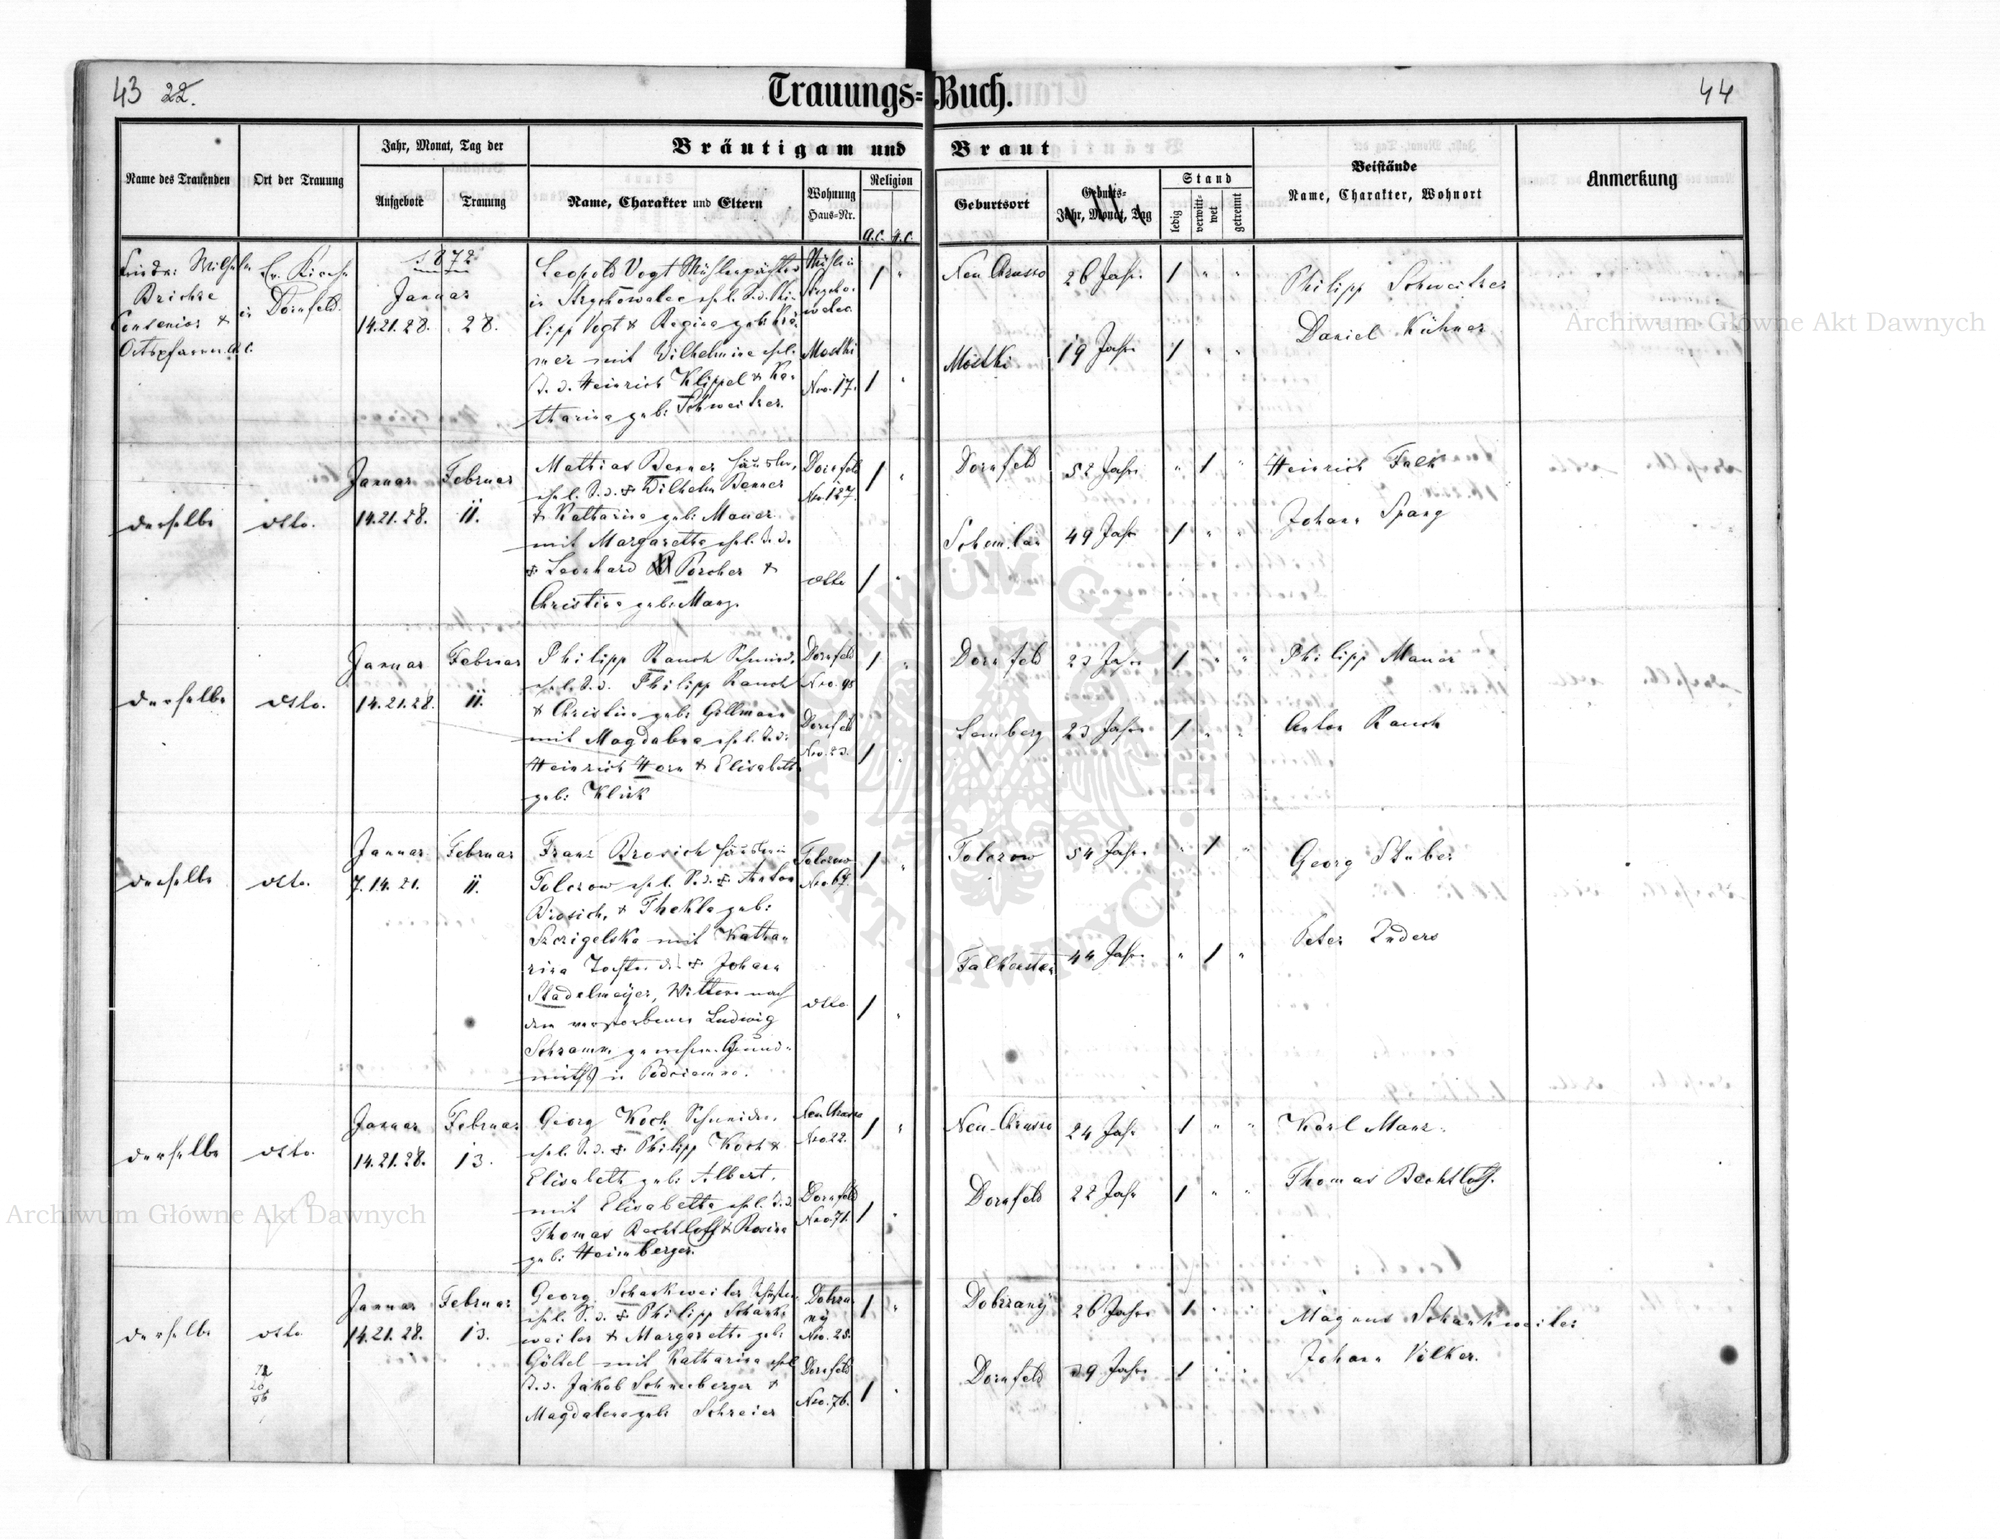 43 22.
Trauungs-Buch.
44
Name des Trauenden
Ort der Trauung
Jahr, Monat, Tag der
Aufgebote
Trauung
Bräutigam und Braut
Name, Charakter und Eltern
Wohnung
Haus-Nr.
Religion
A.C. H.C.
Geburtsort
Geburts-
Jahr, Monat, Tag
Stand
ledig
verwitt-
wet
getrennt
Beistände
Name, Charakter, Wohnort
Anmerkung
Wilhelm
Ev. Kirche
in Dornfeld.
Ortspfarrer A.C.
1872
Januar
14.21.28.
28.
Leopold Vogt Mühlenpächter
in ehel. S. d. Phi-
lipp Vogt & Regina geb.
mer mit Wilhelmine ehel.
T. d. Heinrich Klippel & Ka-
tharina geb. Schweitzer.
Mostki
Nro. 17.
1 "
1 "
Neu Chrusno
26 Jahr.
1 " "
Mostki
19 Jahr
1 " "
Philipp Schweitzer
Daniel Kühner
derselbe
dtto.
Januar
14.21.28.
Februar
11.
Mathias Benner Häusler,
ehel. S. d. + Wilhelm Benner
& Katharina geb. Mauer
mit Margaretha ehel. T. d.
+ Leonhard Porcher &
Christina geb. Manz.
Dornfeld
Nro. 127.
dtto
1 "
1 "
Dornfeld
52 Jahr.
" 1 "
49 Jahr
1 " "
Heinrich Falk
Johann Spang
derselbe
dtto.
Januar
14.21.28.
Februar
11.
Philipp Rauch Schmied,
ehel. S. d. Philipp Rauch
& Christina geb. Gellmann
mit Magdalena ehel. T. d.
Heinrich Horn & Elisabeth
geb. Klück
Dornfeld
Nro. 98
Dornfeld
Nro. 23.
1 "
1 "
Dornfeld
23 Jahr
1 " "
Lemberg
23 Jahr
1 " "
Philipp Mauer
Anton Rauch
derselbe
dtto.
Januar
7.14.21.
Februar
11.
Franz Brosich Häusler in
Tolczow ehel. S. d. + Anton
Brosich, & Thekla geb.
Szczigelska mit Katha-
rina Tochter d. + Johann
Stadelmeyer, Wittwe nach
dem verstorbenen Ludwig
Schramm gewesen. Grund-
wirth in Podciemno.
Tolczow
Nro 67.
dtto
1 "
1 "
Tolczow
54 Jahr.
" 1 "
Falkenstein
44 Jahr.
" 1 "
Georg Stuber
Peter Enders
derselbe
dtto.
Januar
14.21.28.
Februar
13.
Georg Koch Schneider,
ehel. S. d. + Philipp Koch &
Elisabeth geb. Albert,
mit Elisabetha ehel. T. d.
Thomas Bechtloff & Rosina
geb. Heimberger.
Neu Chrusno
Nro 22.
Dornfeld
Nro. 71.
1 "
1 "
Neu-Chrusno
24 Jahr
1 " "
Dornfeld
22 Jahr
1 " "
Karl Manz.
Thomas Bechtloff.
derselbe
dtto.
Januar
14.21.28.
Februar
13.
Georg Schankweiler
ehel. S. d. + Philipp Schank-
weiler & Margaretha geb.
Göttel mit Katharina ehel.
T. d. Jakob Schneeberger &
Magdalena geb. Schreier
Dobrza-
ny
Nro. 28.
Dornfeld
Nro. 76.
1 "
1 "
Dobrzany
26 Jahre
1 " "
Dornfeld
Jahr
1 " "
Magnus Schankweiler
Johann Völker.
Archiwum Główne Akt Dawnych
Archiwum Główne Akt Dawnych
ARCHIWUM GŁÓWNE AKT DAWNYCH